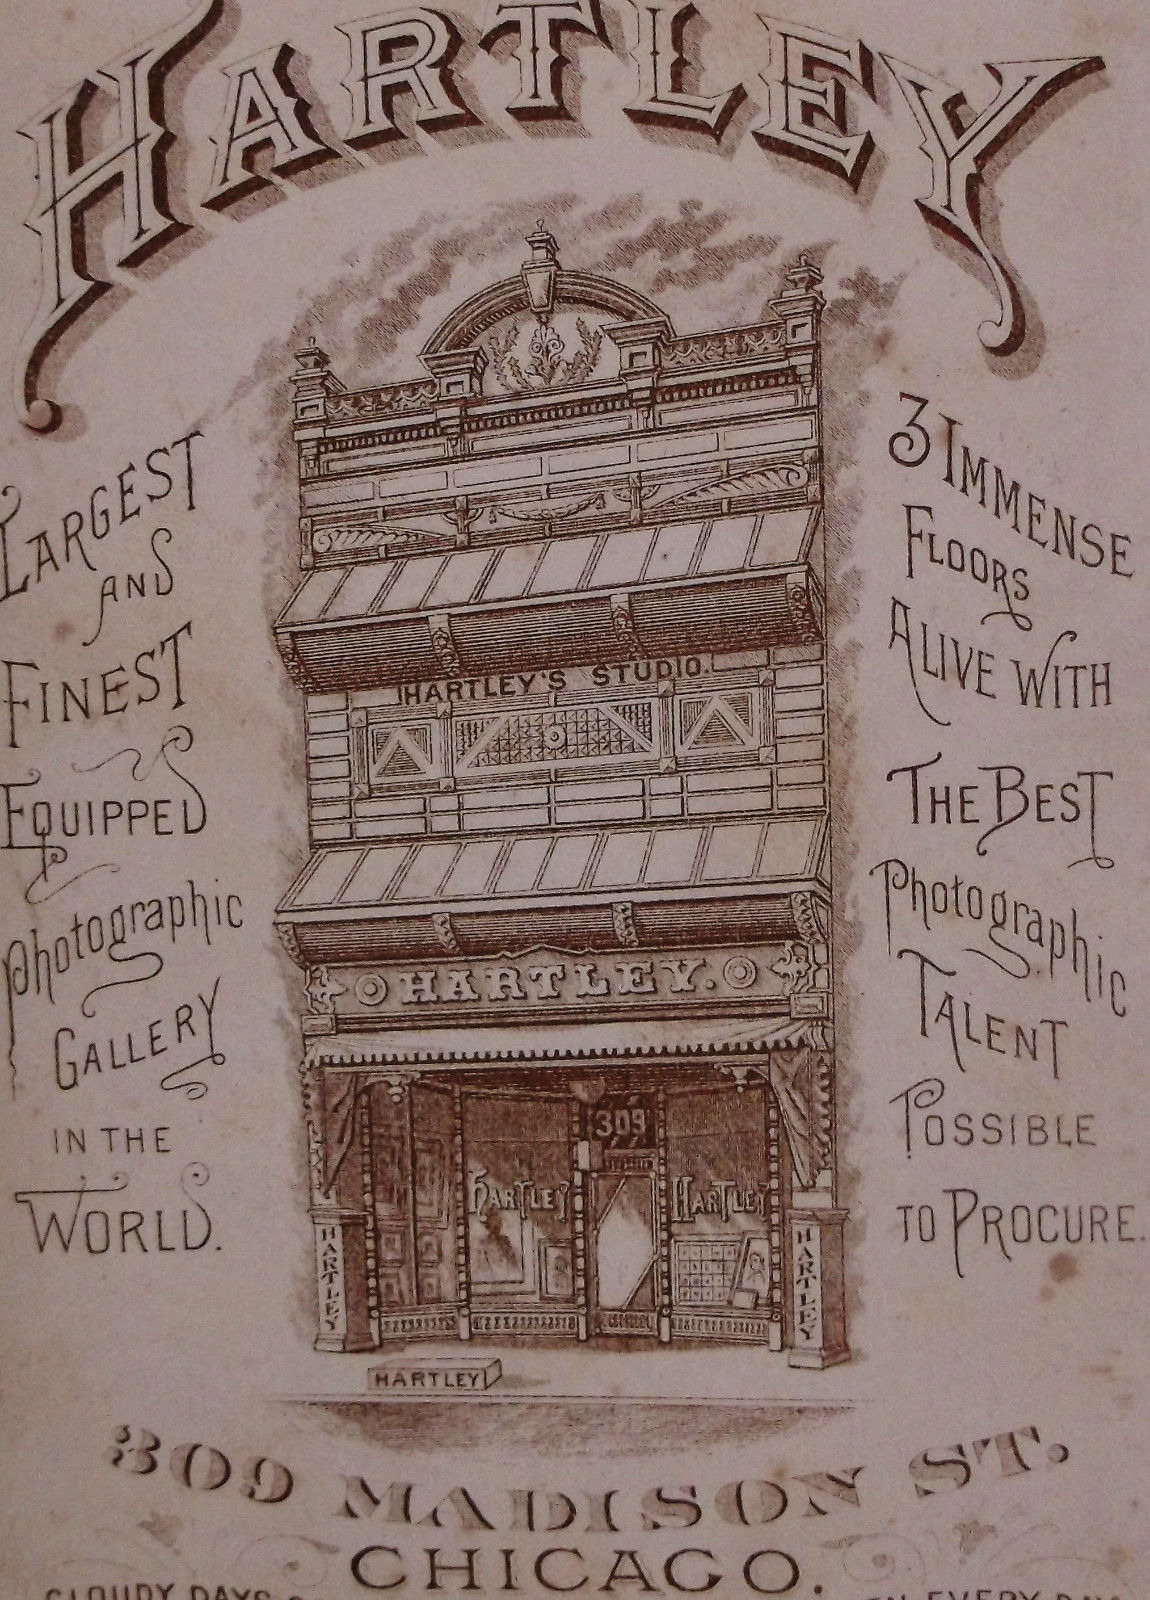 HARTLEY
LARGEST
AND
FINEST
EQUIPPED
Photographic
GALLERY
IN THE
WORLD.
3 IMMENSE
FLOORS
ALIVE WITH
THE BEST
Photographic
TALENT
POSSIBLE
TO PROCURE.
HARTLEY'S STUDIO.
HARTLEY.
309
HARTLEY
HARTLEY
HARTLEY
HARTLEY
HARTLEY
309 MADISON ST.
CHICAGO.
CLOUDY DAYS
EVERY DAY